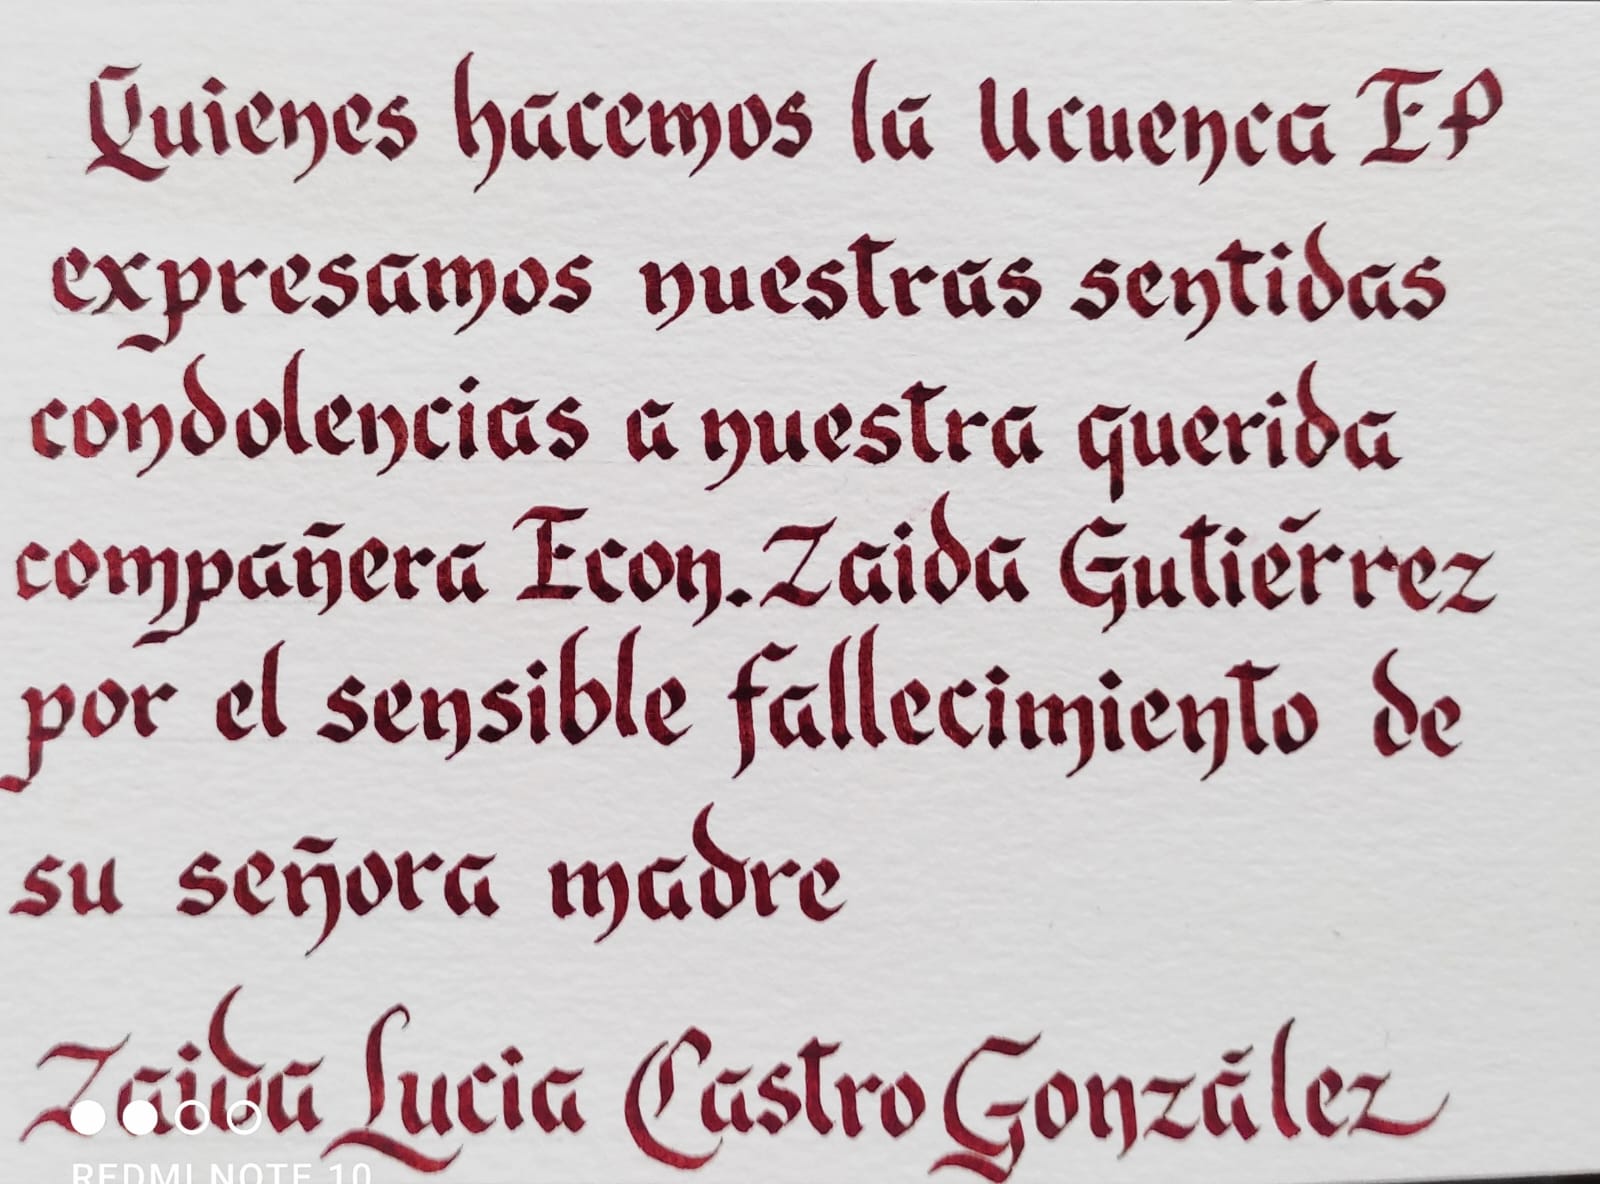 Quienes hacemos la Ucuenca EP
expresamos nuestras sentidas
condolencias a nuestra querida
compañera Econ. Zaida Gutiérrez
por el sensible fallecimiento de
su señora madre
Zaida Lucia Castro González
REDMI NOTE 10